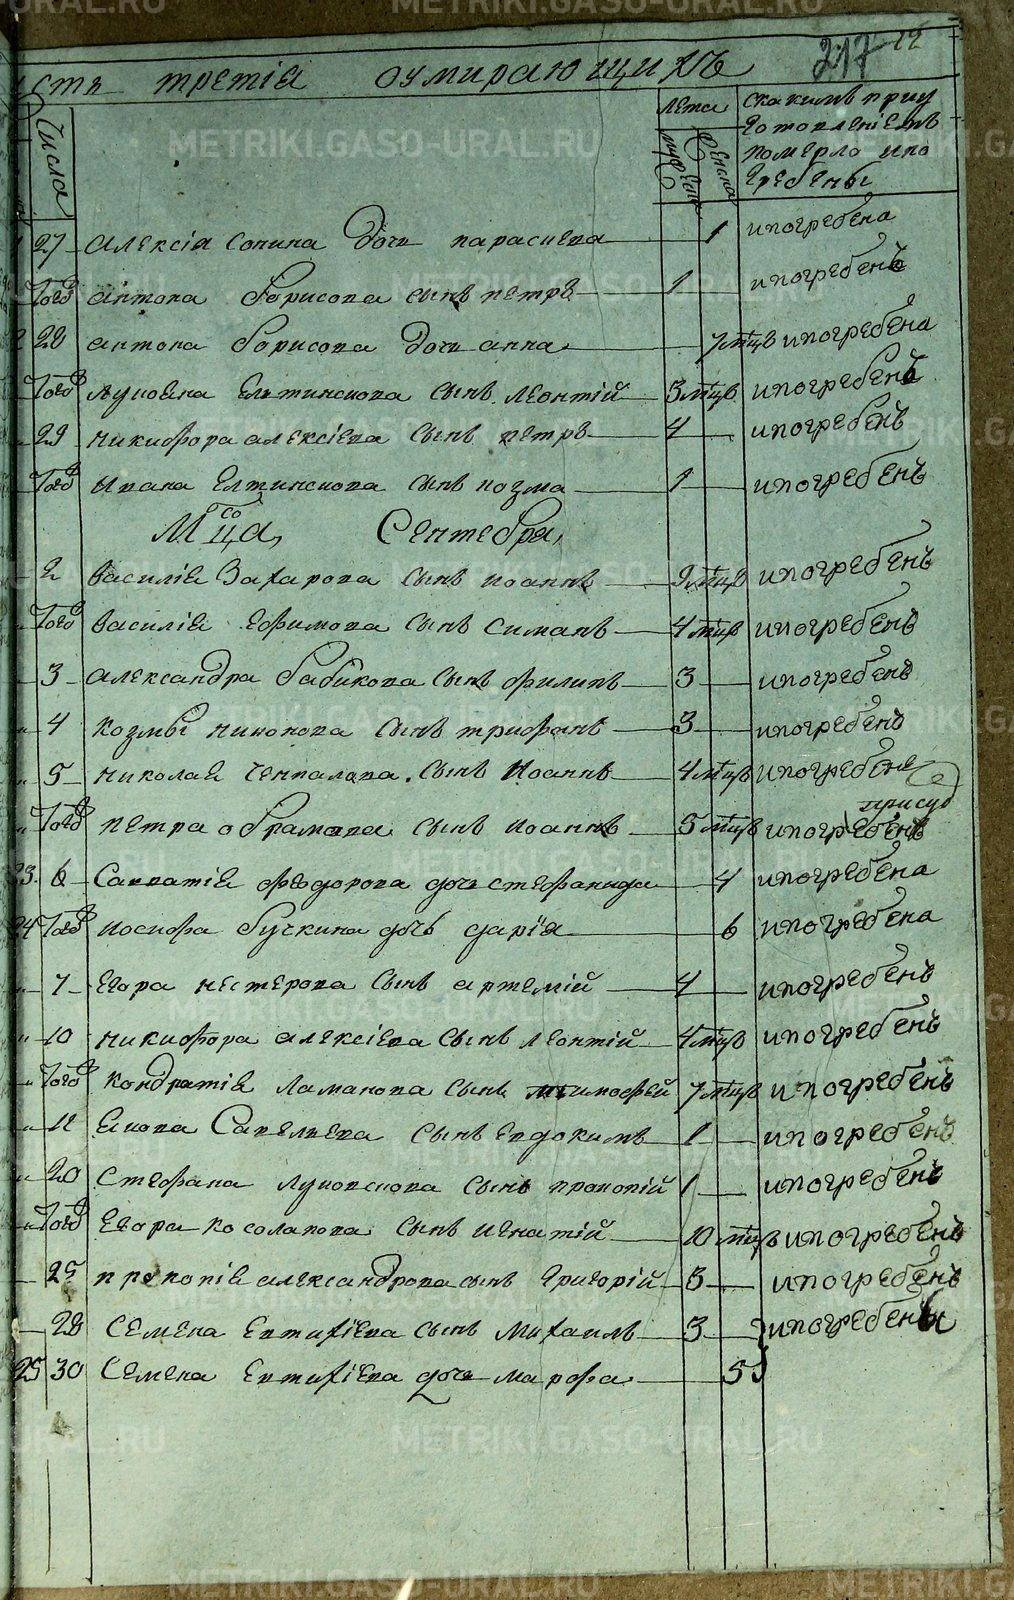 METRIKI.GASO-URAL.RU
217
сть третія оумирающихъ
числа
лета
мужеска
женска
скакимъ приу
готовленіемъ
померло ипо
гребены
27 алексія сонина дочь парасиева 1 ипогребена
Того антона борисова сынъ петръ 1 ипогребенъ
28 антона борисова дочь анна 7 мцъ ипогребена
Того лукояна сынъ леонтій 3 мцъ ипогребенъ
29 никифора алексіева сынъ петръ 4 ипогребенъ
Того ивана сынъ козма 1 ипогребенъ
Мцца, Сентебря,
2 василія Захарова сынъ иоаннъ 9 мцъ ипогребенъ
Того василія ефимова сынъ симанъ 4 мцъ ипогребенъ
3 александра бабикова сынъ филипъ 3 ипогребенъ
4 козмы никонова сынъ трифанъ 3 ипогребенъ
5 николая сынъ Иоаннъ 4 мцъ ипогребенъ
Того петра обрамова сынъ иоаннъ 5 мцъ ипогребенъ
23 6 Савватія феодорова дочь стефанида 4 ипогребена
24 Того иосифа бучкина дочь дарія 6 ипогребена
7 егора нестерова сынъ артемій 4 ипогребенъ
10 никифора алексіева сынъ леонтій 4 мцъ ипогребенъ
Того кондратія ламанова сынъ тимофей 7 мцъ ипогребенъ
11 Сапелиева сынъ евдокимъ 1 ипогребенъ
20 стефана луковскова сынъ прокопій 1 ипогребенъ
Того егора косолапова сынъ игнатій 10 мцъ ипогребенъ
25 прокопія александрова сынъ григорій 3 ипогребенъ
28 семена евтихіева сынъ михаилъ 3 ипогребены
25 30 семена евтихіева дочь марфа 5